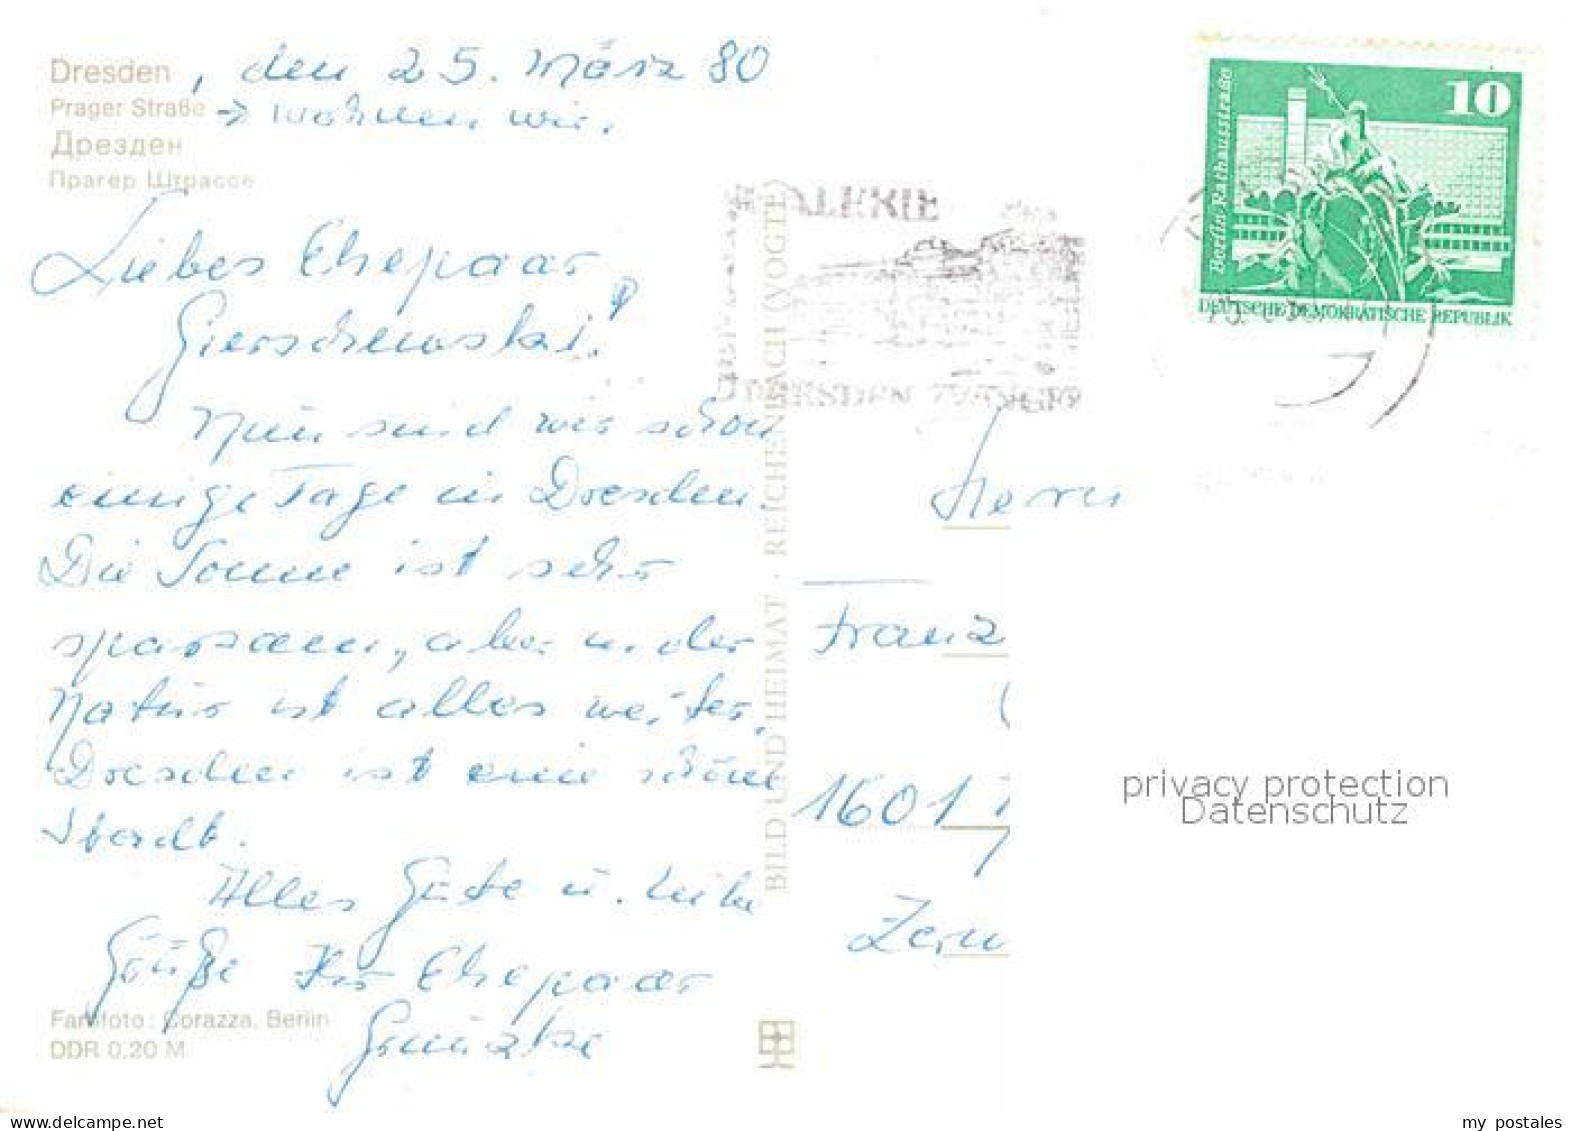 Dresden, den 25. März 80
Prager Straße → wohnen wir.
Дрезден
Прагер Штрассе
Liebes Ehepaar
Gierschewski!
Nun sind wir schon
einige Tage in Dresden.
Die Sonne ist sehr
sparsam, aber in der
Natur ist alles weiter.
Dresden ist eine schöne
Stadt.
Alles Gute u. liebe
Grüße Ihr Ehepaar
Farbfoto: Corazza, Berlin
DDR 0.20 M
BILD UND HEIMAT · REICHENBACH (VOGTL)
GALERIE
DRESDEN ZWINGER
10
Berlin Rathausstraße
DEUTSCHE DEMOKRATISCHE REPUBLIK
Herrn
Franz
1601
Zern
privacy protection
Datenschutz
my postales